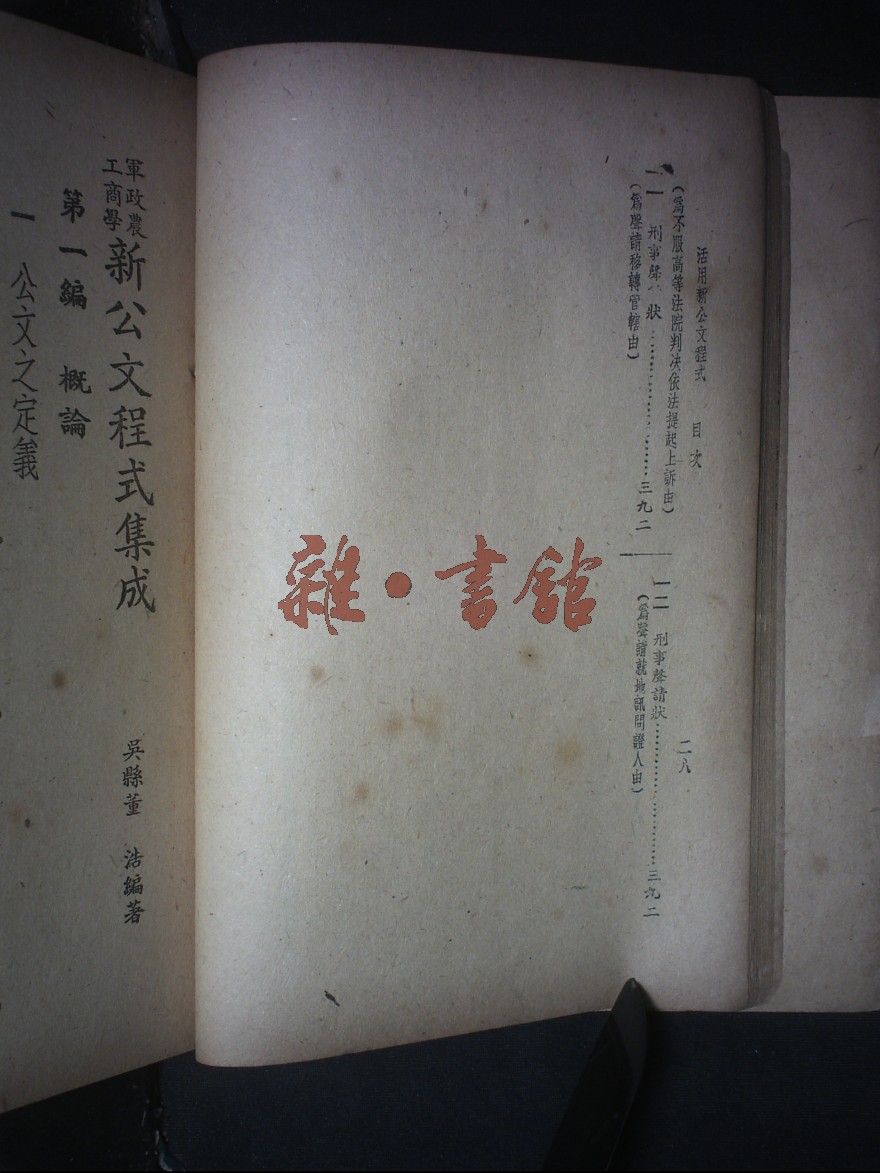 活用新公文程式 目次 二八
(爲不服高等法院判决依法提起上訴由)
刑事聲 狀……………………三九二
(爲聲請移轉管轄由)
一二 刑事聲請狀……………………三九二
(爲聲請就地訊問證人由)
雜·書館
軍政農
工商學
新公文程式集成
吳縣董 浩編著
第一編 概論
一 公文之定義